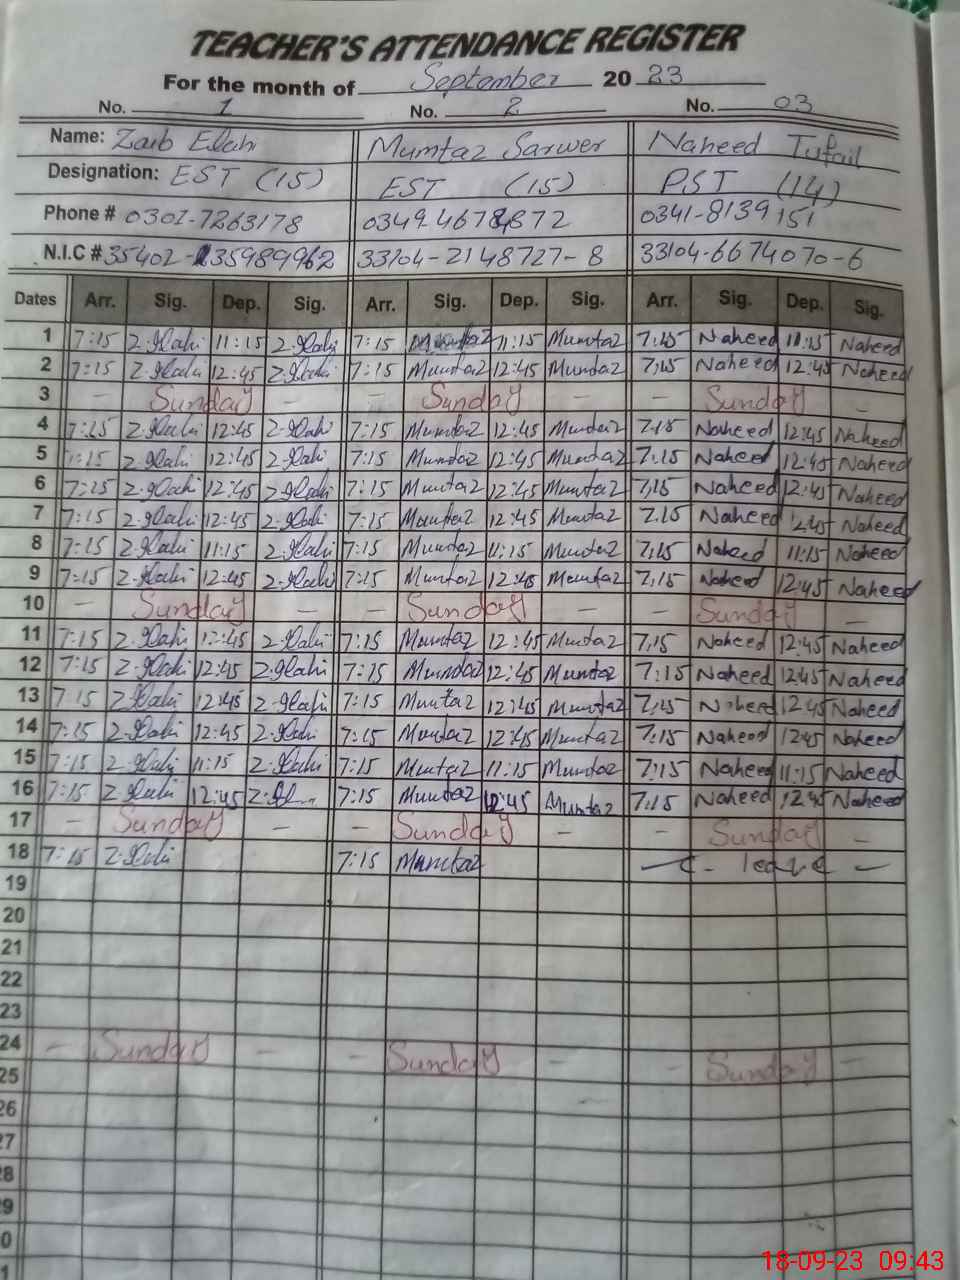 TEACHER'S ATTENDANCE REGISTER
For the month of September 2023
No. 1 No. 2 No. 03
Name: Zaib Elahi Mumtaz Sarwer Naheed Tufail
Designation: EST (15) EST (15) PST (14)
Phone # 0301-7263178 0341-8139151
N.I.C # 33104-2148727-8 33104-6674070-6
Dates Arr. Sig. Dep. Sig. Arr. Sig. Dep. Sig. Arr. Sig. Dep. Sig.
1 7:15 Z.Elahi 11:15 Z.Elahi 7:15 Mumtaz 11:15 Mumtaz 7:15 Naheed 11:15 Naheed
2 7:15 Z.Elahi 12:45 Z.Elahi 7:15 Mumtaz 12:45 Mumtaz 7:15 Naheed 12:45 Naheed
3 - Sunday - - Sunday - - Sunday -
4 7:15 Z.Elahi 12:45 Z.Elahi 7:15 Mumtaz 12:45 Mumtaz 7:15 Naheed 12:45 Naheed
5 7:15 Z.Elahi 12:45 Z.Elahi 7:15 Mumtaz 12:45 Mumtaz 7:15 Naheed 12:45 Naheed
6 7:15 Z.Elahi 12:45 Z.Elahi 7:15 Mumtaz 12:45 Mumtaz 7:15 Naheed 12:45 Naheed
7 7:15 Z.Elahi 12:45 Z.Elahi 7:15 Mumtaz 12:45 Mumtaz 7:15 Naheed 12:45 Naheed
8 7:15 Z.Elahi 11:15 Z.Elahi 7:15 Mumtaz 11:15 Mumtaz 7:15 Naheed 11:15 Naheed
9 7:15 Z.Elahi 12:45 Z.Elahi 7:15 Mumtaz 12:45 Mumtaz 7:15 Naheed 12:45 Naheed
10 - Sunday - - Sunday - - Sunday -
11 7:15 Z.Elahi 12:45 Z.Elahi 7:15 Mumtaz 12:45 Mumtaz 7:15 Naheed 12:45 Naheed
12 7:15 Z.Elahi 12:45 Z.Elahi 7:15 Mumtaz 12:45 Mumtaz 7:15 Naheed 12:45 Naheed
13 7:15 Z.Elahi 12:45 Z.Elahi 7:15 Mumtaz 12:45 Mumtaz 7:15 Naheed 12:45 Naheed
14 7:15 Z.Elahi 12:45 Z.Elahi 7:15 Mumtaz 12:45 Mumtaz 7:15 Naheed 12:45 Naheed
15 7:15 Z.Elahi 11:15 Z.Elahi 7:15 Mumtaz 11:15 Mumtaz 7:15 Naheed 11:15 Naheed
16 7:15 Z.Elahi 12:45 7:15 Mumtaz 12:45 Mumtaz 7:15 Naheed 12:45 Naheed
17 - Sunday - - Sunday - - Sunday -
18 7:15 Z.Elahi 7:15 Mumtaz leave
19
20
21
22
23
24 - Sunday - - Sunday - - Sunday -
25
26
27
8
9
0
1
18-09-23 09:43